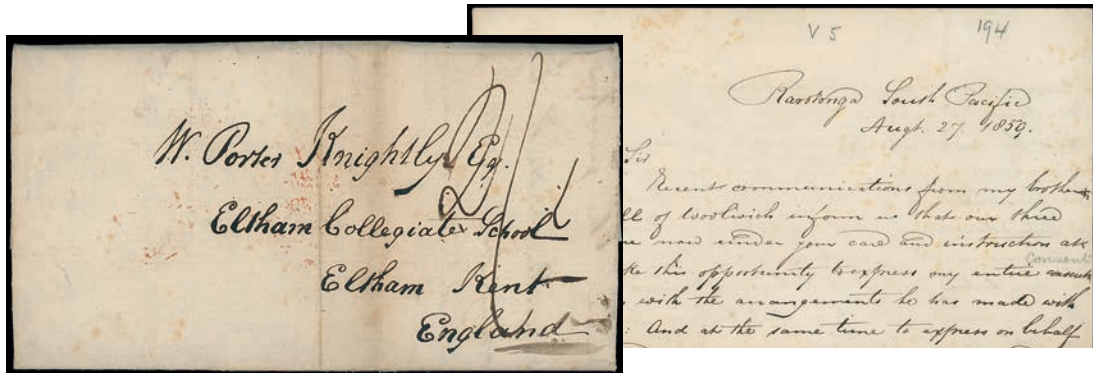 W. Porter Knightly Esq.
Eltham Collegiate School
Eltham Kent
England
V 5 194
Rarotonga South Pacific
Augt. 27. 1850.
Sir
Recent communications from my brother
ll of Woolwich inform us that our third
now under your care and instruction
ke this opportunity to express my entire consent
with the arrangements he has made with
: And at the same time to express on behalf